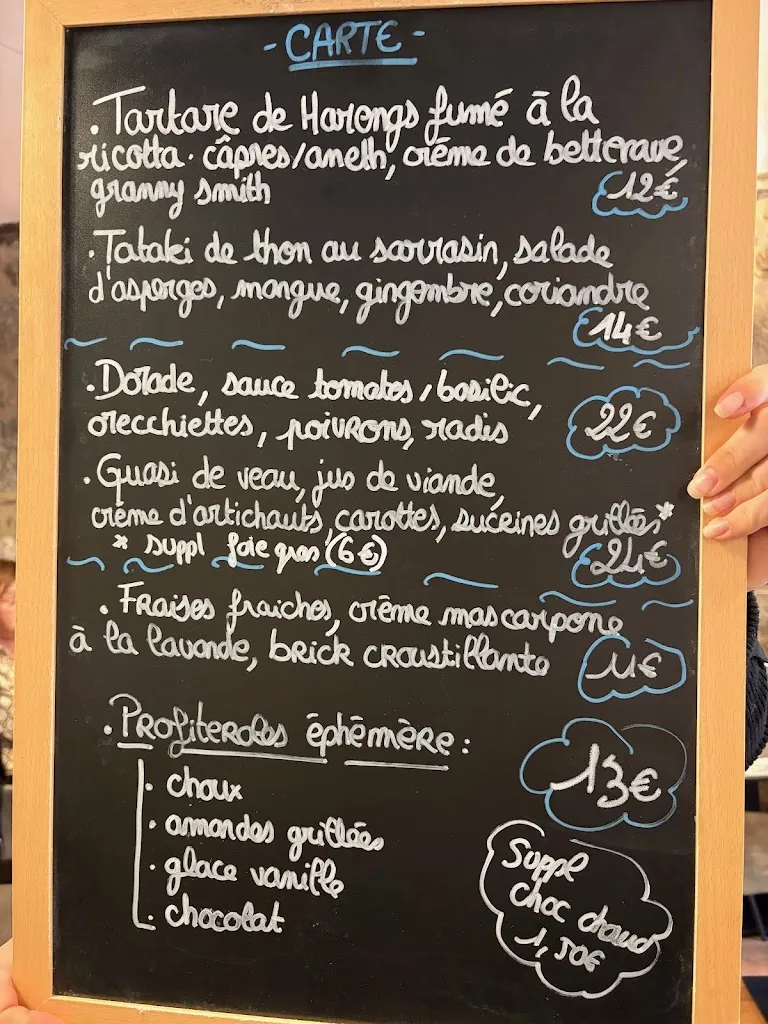 - CARTE -
. Tartare de Harengs fumé à la
ricotta. câpres/aneth, crème de betterave,
granny smith
12€
. Tataki de thon au sarrasin, salade
d'asperges, mangue, gingembre, coriandre
14€
. Dorade, sauce tomates/basilic,
orecchiettes, poivrons, radis
22€
. Quasi de veau, jus de viande,
crème d'artichauts, carottes, sucrines grillées*
* suppl foie gras (6€)
24€
. Fraises fraiches, crème mascarpone
à la lavande, brick croustillante
11€
. Profiteroles éphémère :
13€
. choux
. amandes grillées
. glace vanille
. chocolat
Suppl
choc chaud
1,50€